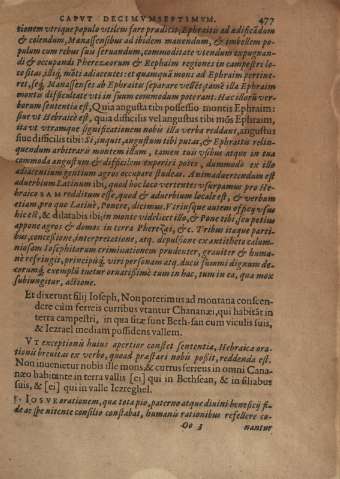 CAPVT DECIMVMSEPTIMVM. 477
tionem vtrique populo vtilem fore prædicit, Ephraitis ad ædificãdum
& colendum, Manassensibus ad ibidem manendum, & imbellem po-
pulum cum rebus suis seruandum, commoditate viendum expugnan-
di & occupandi Pherezæorum & Rephaim regiones in campestri lo-
co sitas, illiq́; môti adiacentes: et quamquã mons ad Ephraim pertine-
ret, seq́; Manassenses ab Ephraitis separare vellẽt, tamẽ illa Ephraim
montis difficultate vti in suum commodum poterant. Hac illorũ ver-
borum sententia est, Quia angusta tibi possessio montis Ephraim:
siue vt Hebraicè est, quia difficilis vel angustus tibi mõs Ephraim,
ita vt vtramque significationem nobis illa verba reddant, angustus
siue difficilis tibi: Si, inquit, angustum tibi putas, & Ephraitis relin-
quendum arbitraris montem illum, tamen tuis vsibus atque in tua
commoda angustum & difficilem experiri potes, dummodo ex illo
adiacentium gentium agros occupare studeas. Animaduertendum est
aduerbium Latinum ibi, quod hoc loco vertentes vsurpamus pro He-
braico sam redditum esse, quod & aduerbium locale est, & verbum
etiam, pro quo Latinè, Ponere, dicimus. Vtriusque autem officij vsus
hic est, & dilatabis ibi, in monte videlicet illo, & Pone tibi, seu potius
appone agros & domos in terra Pherezæi, &c. Tribus itaque parti-
bus, concessione, interpretatione, atq. depulsione ex antitheto calum-
niosam Iosephitarum criminationem prudenter, grauiter & huma-
nè refringit, principiq́; viri personam atq. ducis summi dignum de-
corumq́; exemplũ tuetur ornatissimè tum in hac, tum in ea, qua mox
subiungitur, actione.
Et dixerunt filij Ioseph, Non poterimus ad montana conscen-
dere cùm ferreis curribus vtantur Chananæi, qui habitãt in
terra campestri, in qua sitæ sunt Beth-san cum viculis suis,
& Iezrael mediam possidens vallem.
VT exceptionis huius apertior constet sententia, Hebraica ora-
tionis breuitas ex verbo, quoad præstari nobis possit, reddenda est.
Non inuenietur nobis ille mons, & currus ferreus in omni Cana-
næo habitante in terra vallis [ei] qui in Bethsean, & in filiabus
suis, & [ei] qui in valle Iezreghel.
IOSVE orationem, quæ tota pio, paterno atque diuini beneficij fi-
de ac spe nitente consilio constabat, humanis rationibus refellere co-
Oo 3 nantur